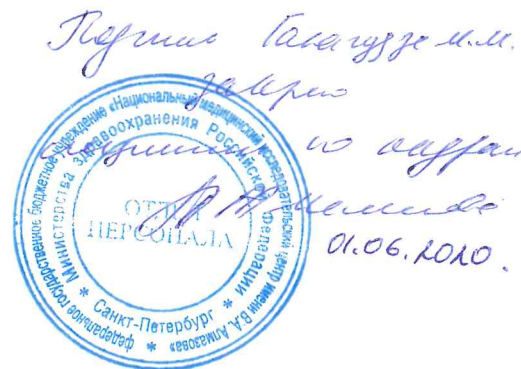 Подпись Галагудза М.М.
заверяю
специалист по кадрам
01.06.2020.
федеральное государственное бюджетное учреждение «Национальный медицинский исследовательский центр имени В.А. Алмазова»
Министерства здравоохранения Российской Федерации
Санкт-Петербург
ОТДЕЛ
ПЕРСОНАЛА